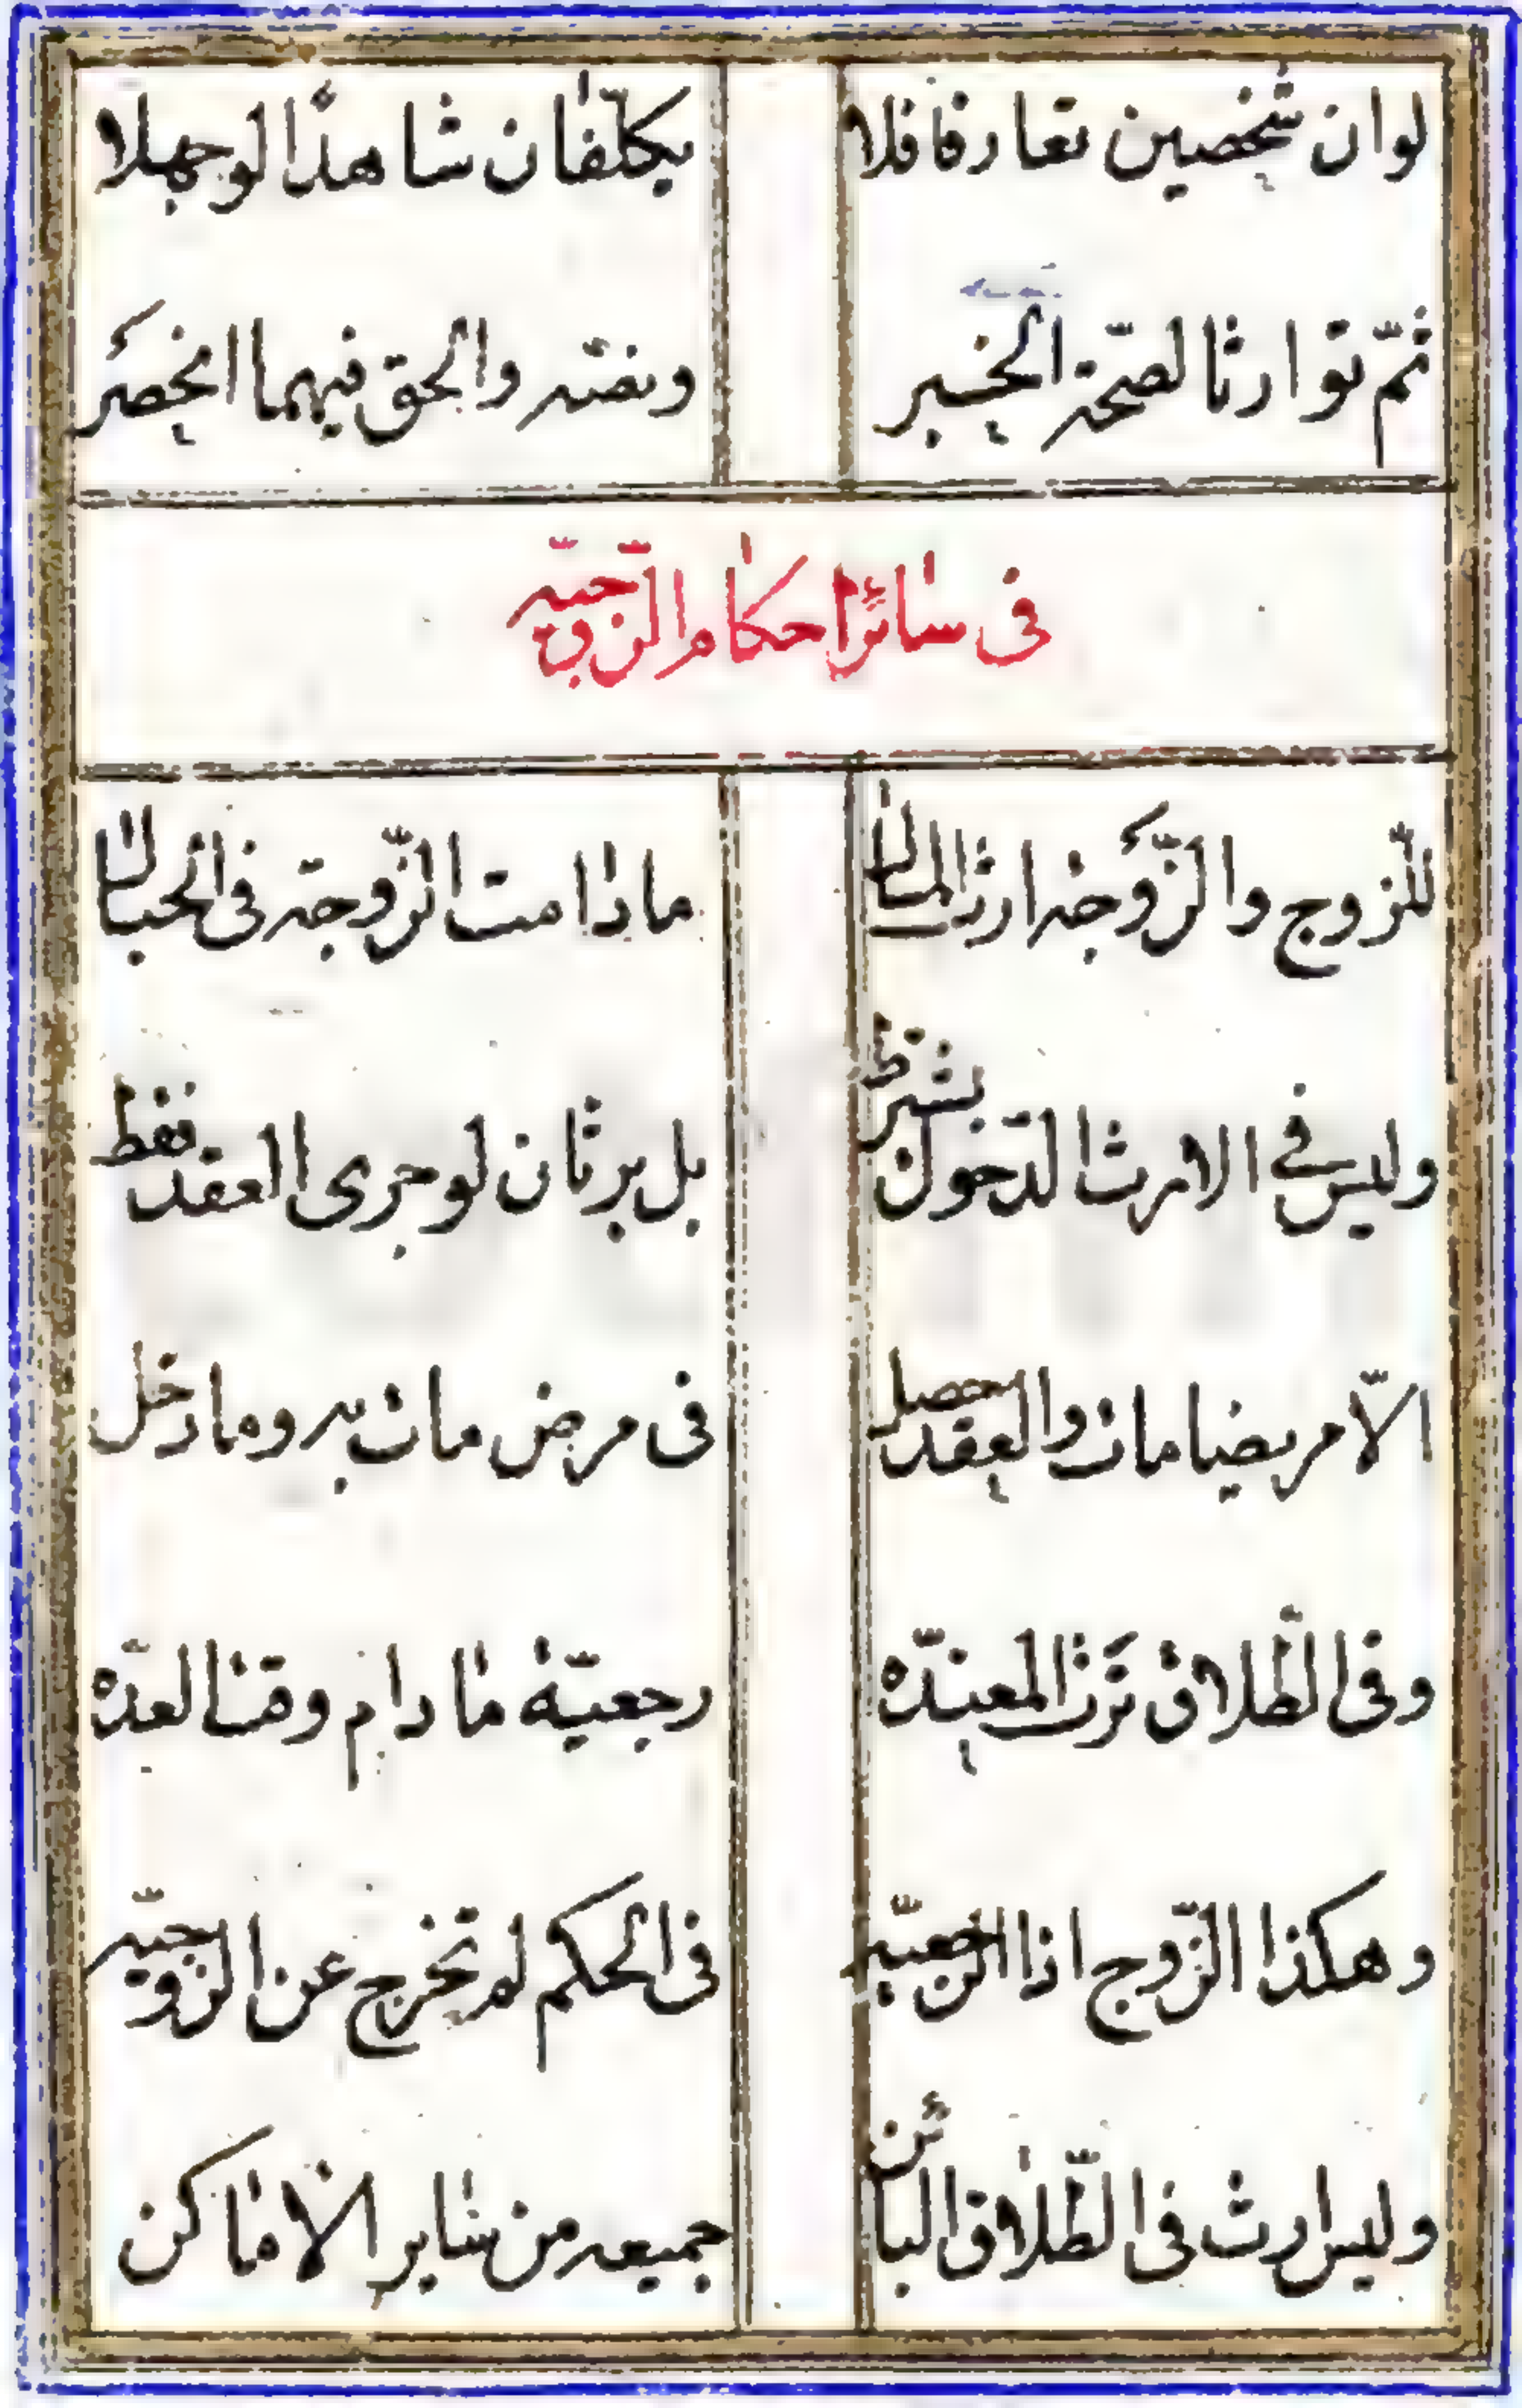 لو ان شخصين تعارفا فلا يكلّفان شاهدًا لو جهلا
ثمّ توارثا لصحّة الخبر ونصّه والحق فيهما انحصَر
فى سائر احكام الزّوجيّه
للزّوج والزَّوجة ارث المال ما دامت الزّوجة فى الحبال
وليس فى الارث الدّخول يشترط بل يرثان لو جرى العقد فقط
الّا مريضا مات والعقد حصل فى مرض مات به وما دخل
وفى الطّلاق تَرث المعتدّه رجعيّة ما دام وقت العدّه
وهكذا الزّوج اذا الرّجعيّه فى الحكم لم تخرج عن الزّوجيّه
وليس ارث فى الطّلاق البائن جميعه من ساير الاماكن